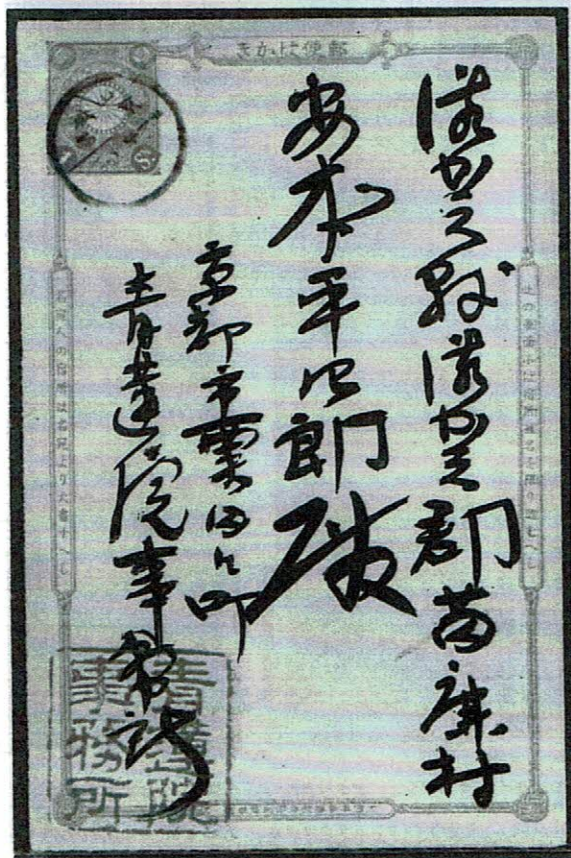 郵便はかき
滋賀縣滋賀郡苗鹿村
安本平四郎殿
京都市粟田口町
青蓮院事務所
青蓮院
事務所